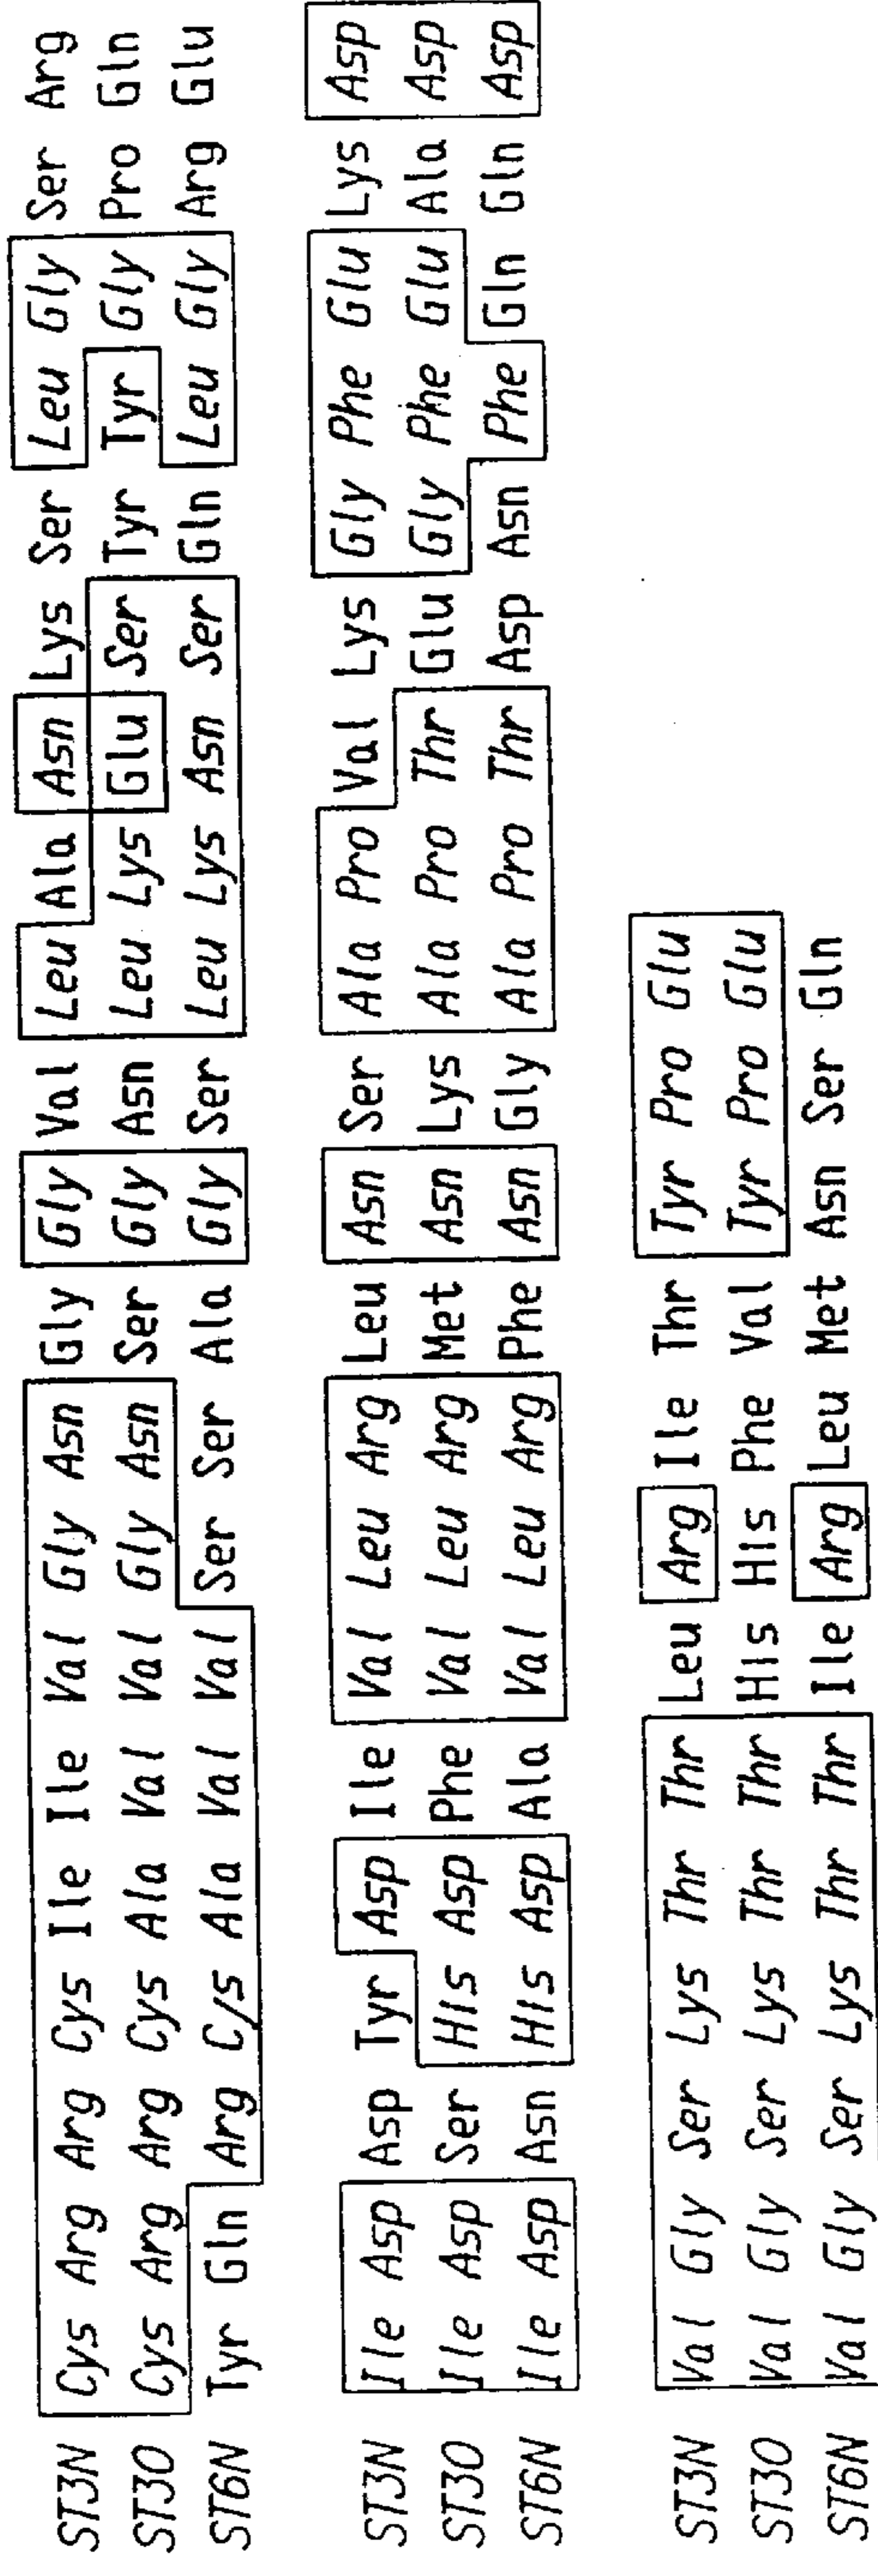 ST3N Cys Arg Arg Cys Ile Ile Val Gly Asn Gly Gly Val Leu Ala Asn Lys Ser Leu Gly Ser Arg
ST3O Cys Arg Arg Cys Ala Val Val Gly Asn Ser Gly Asn Leu Lys Glu Ser Tyr Tyr Gly Pro Gln
ST6N Tyr Gln Arg Cys Ala Val Val Ser Ser Ala Gly Ser Leu Lys Asn Ser Gln Leu Gly Arg Glu
ST3N Ile Asp Asp Tyr Asp Ile Val Leu Arg Leu Asn Ser Ala Pro Val Lys Gly Phe Glu Lys Asp
ST3O Ile Asp Ser His Asp Phe Val Leu Arg Met Asn Lys Ala Pro Thr Glu Gly Phe Glu Ala Asp
ST6N Ile Asp Asn His Asp Ala Val Leu Arg Phe Asn Gly Ala Pro Thr Asp Asn Phe Gln Gln Asp
ST3N Val Gly Ser Lys Thr Thr Leu Arg Ile Thr Tyr Pro Glu
ST3O Val Gly Ser Lys Thr Thr His His Phe Val Tyr Pro Glu
ST6N Val Gly Ser Lys Thr Thr Ile Arg Leu Met Asn Ser Gln